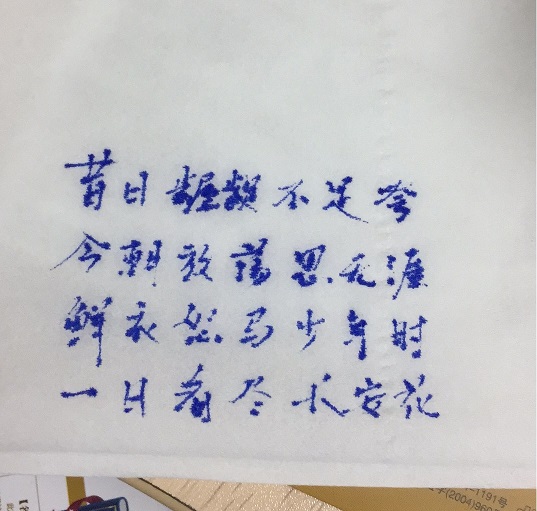 昔日龌龊不足夸
今朝放荡思无涯
鲜衣怒马少年时
一日看尽长安花
1191号
(2004)860